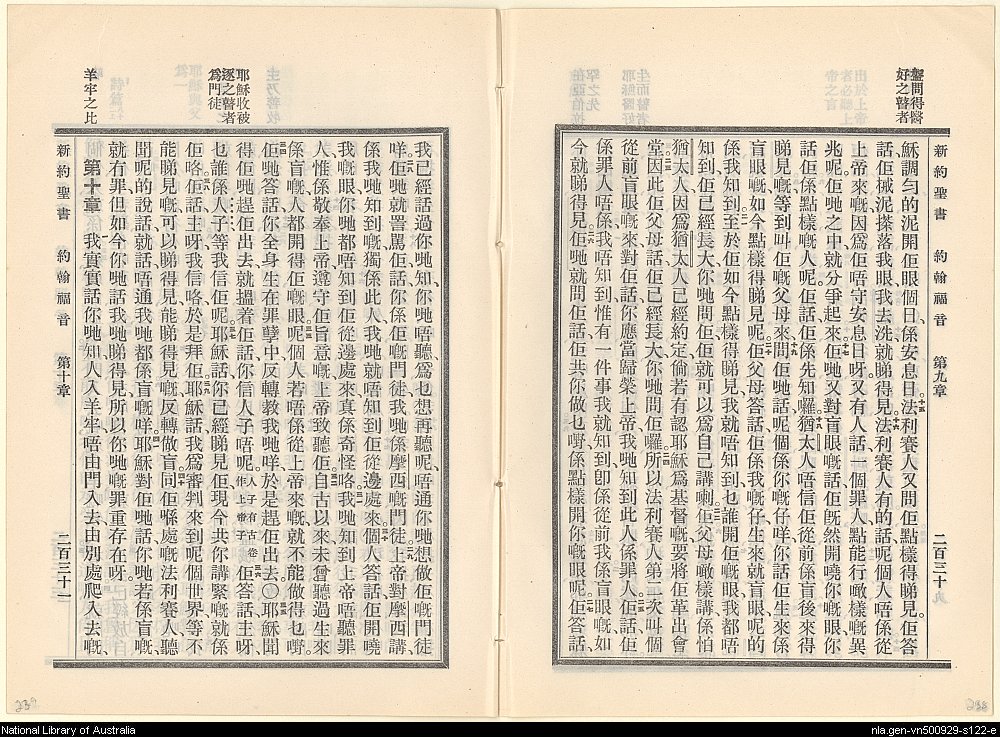 盤問得醫
好之瞽者
新約聖書 約翰福音 第九章 二百三十
穌調勻的泥開佢眼個日、係安息日。法利賽人又問佢點樣得睇見。佢答
話、佢械泥搽落我眼、我去洗、就睇得見。法利賽人有的話、呢個人唔係從
上帝來嘅、因爲佢唔守安息日呀。又有人話、一個罪人點能行噉樣異
兆呢。佢哋之中就分爭起來。佢哋又對盲眼嘅話、佢既然開曉你嘅眼、你
話佢係點樣嘅人呢。佢話、佢係先知囉。猶太人唔信佢從前係盲、後來得
睇見嘅、等到叫佢嘅父母來、問佢哋話、呢個係你嘅仔、你話佢生來就
盲眼嘅、如今點樣得睇見呢。佢父母答話、佢係我嘅仔、生來就盲眼呢的
係我知到、至於佢如今點樣得睇見、我就唔知到、乜誰開佢嘅眼、我都唔
知到、佢已經長大、你哋問佢、佢就可以爲自己講喇。佢父母噉樣講、係怕
猶太人、因爲猶太人已經約定、倘若有人認耶穌爲基督嘅、要將佢革出會
堂。因此佢父母話、佢已經長大、你哋問佢囉。所以法利賽人第二次叫個
從前盲眼嘅來、對佢話、你應當歸榮上帝、我哋知到此人係罪人。佢話、佢
係罪人唔係、我唔知到、惟有一件事我就知到、卽係從前我係盲眼嘅、如
今就睇得見。佢哋就問佢話、佢共你做乜嘢、係點樣開你嘅眼呢。佢答話、
耶穌收被
逐之瞽者
爲門徒
羊牢之比
我已經話過你哋知、你哋唔聽、爲乜想再聽呢、唔通你哋想做佢嘅門徒
咩。佢哋就詈罵佢話、你係佢嘅門徒、我哋係摩西嘅門徒。上帝對摩西講、
係我哋知到嘅、獨係此人、我哋就唔知到佢從邊處來。個人答話、佢開曉
我嘅眼、你哋都唔知到佢從邊處來、真係奇怪咯。我哋知到上帝唔聽罪
人、惟係敬奉上帝、遵守佢旨意嘅、上帝致聽佢。自古以來、未曾聽過生來
係盲嘅、人都開得佢嘅眼。呢個人若唔係從上帝來嘅、就不能做得乜嘢。
佢哋答話、你全身生在罪孽中、反轉教我哋咩。於是趕佢出去。〇耶穌聞
得佢哋趕佢出去、就搵着佢、話、你信人子唔呢。人子有古卷作上帝子佢答話、主呀、
乜誰係人子、等我信佢呢。耶穌話、你已經睇見佢、現今共你講緊嘅就係
佢咯。佢話、主呀、我信咯、於是拜佢。耶穌話、我爲審判來到呢個世界、等不
能睇見嘅、可以睇得見、能睇得見嘅、反轉做盲。同佢喺處嘅法利賽人、聽
聞呢的說話、就話、唔通我哋都係盲嘅咩。耶穌對佢哋話、你哋若係盲嘅、
就冇罪、但如今你哋話、我哋睇得見、所以你哋嘅罪重存在呀。
第十章 我實實話你哋知、人入羊牢、唔由門入去、由別處爬入去嘅、
新約聖書 約翰福音 第十章 二百三十一
239
238
National Library of Australia
nla.gen-vn500929-s122-e